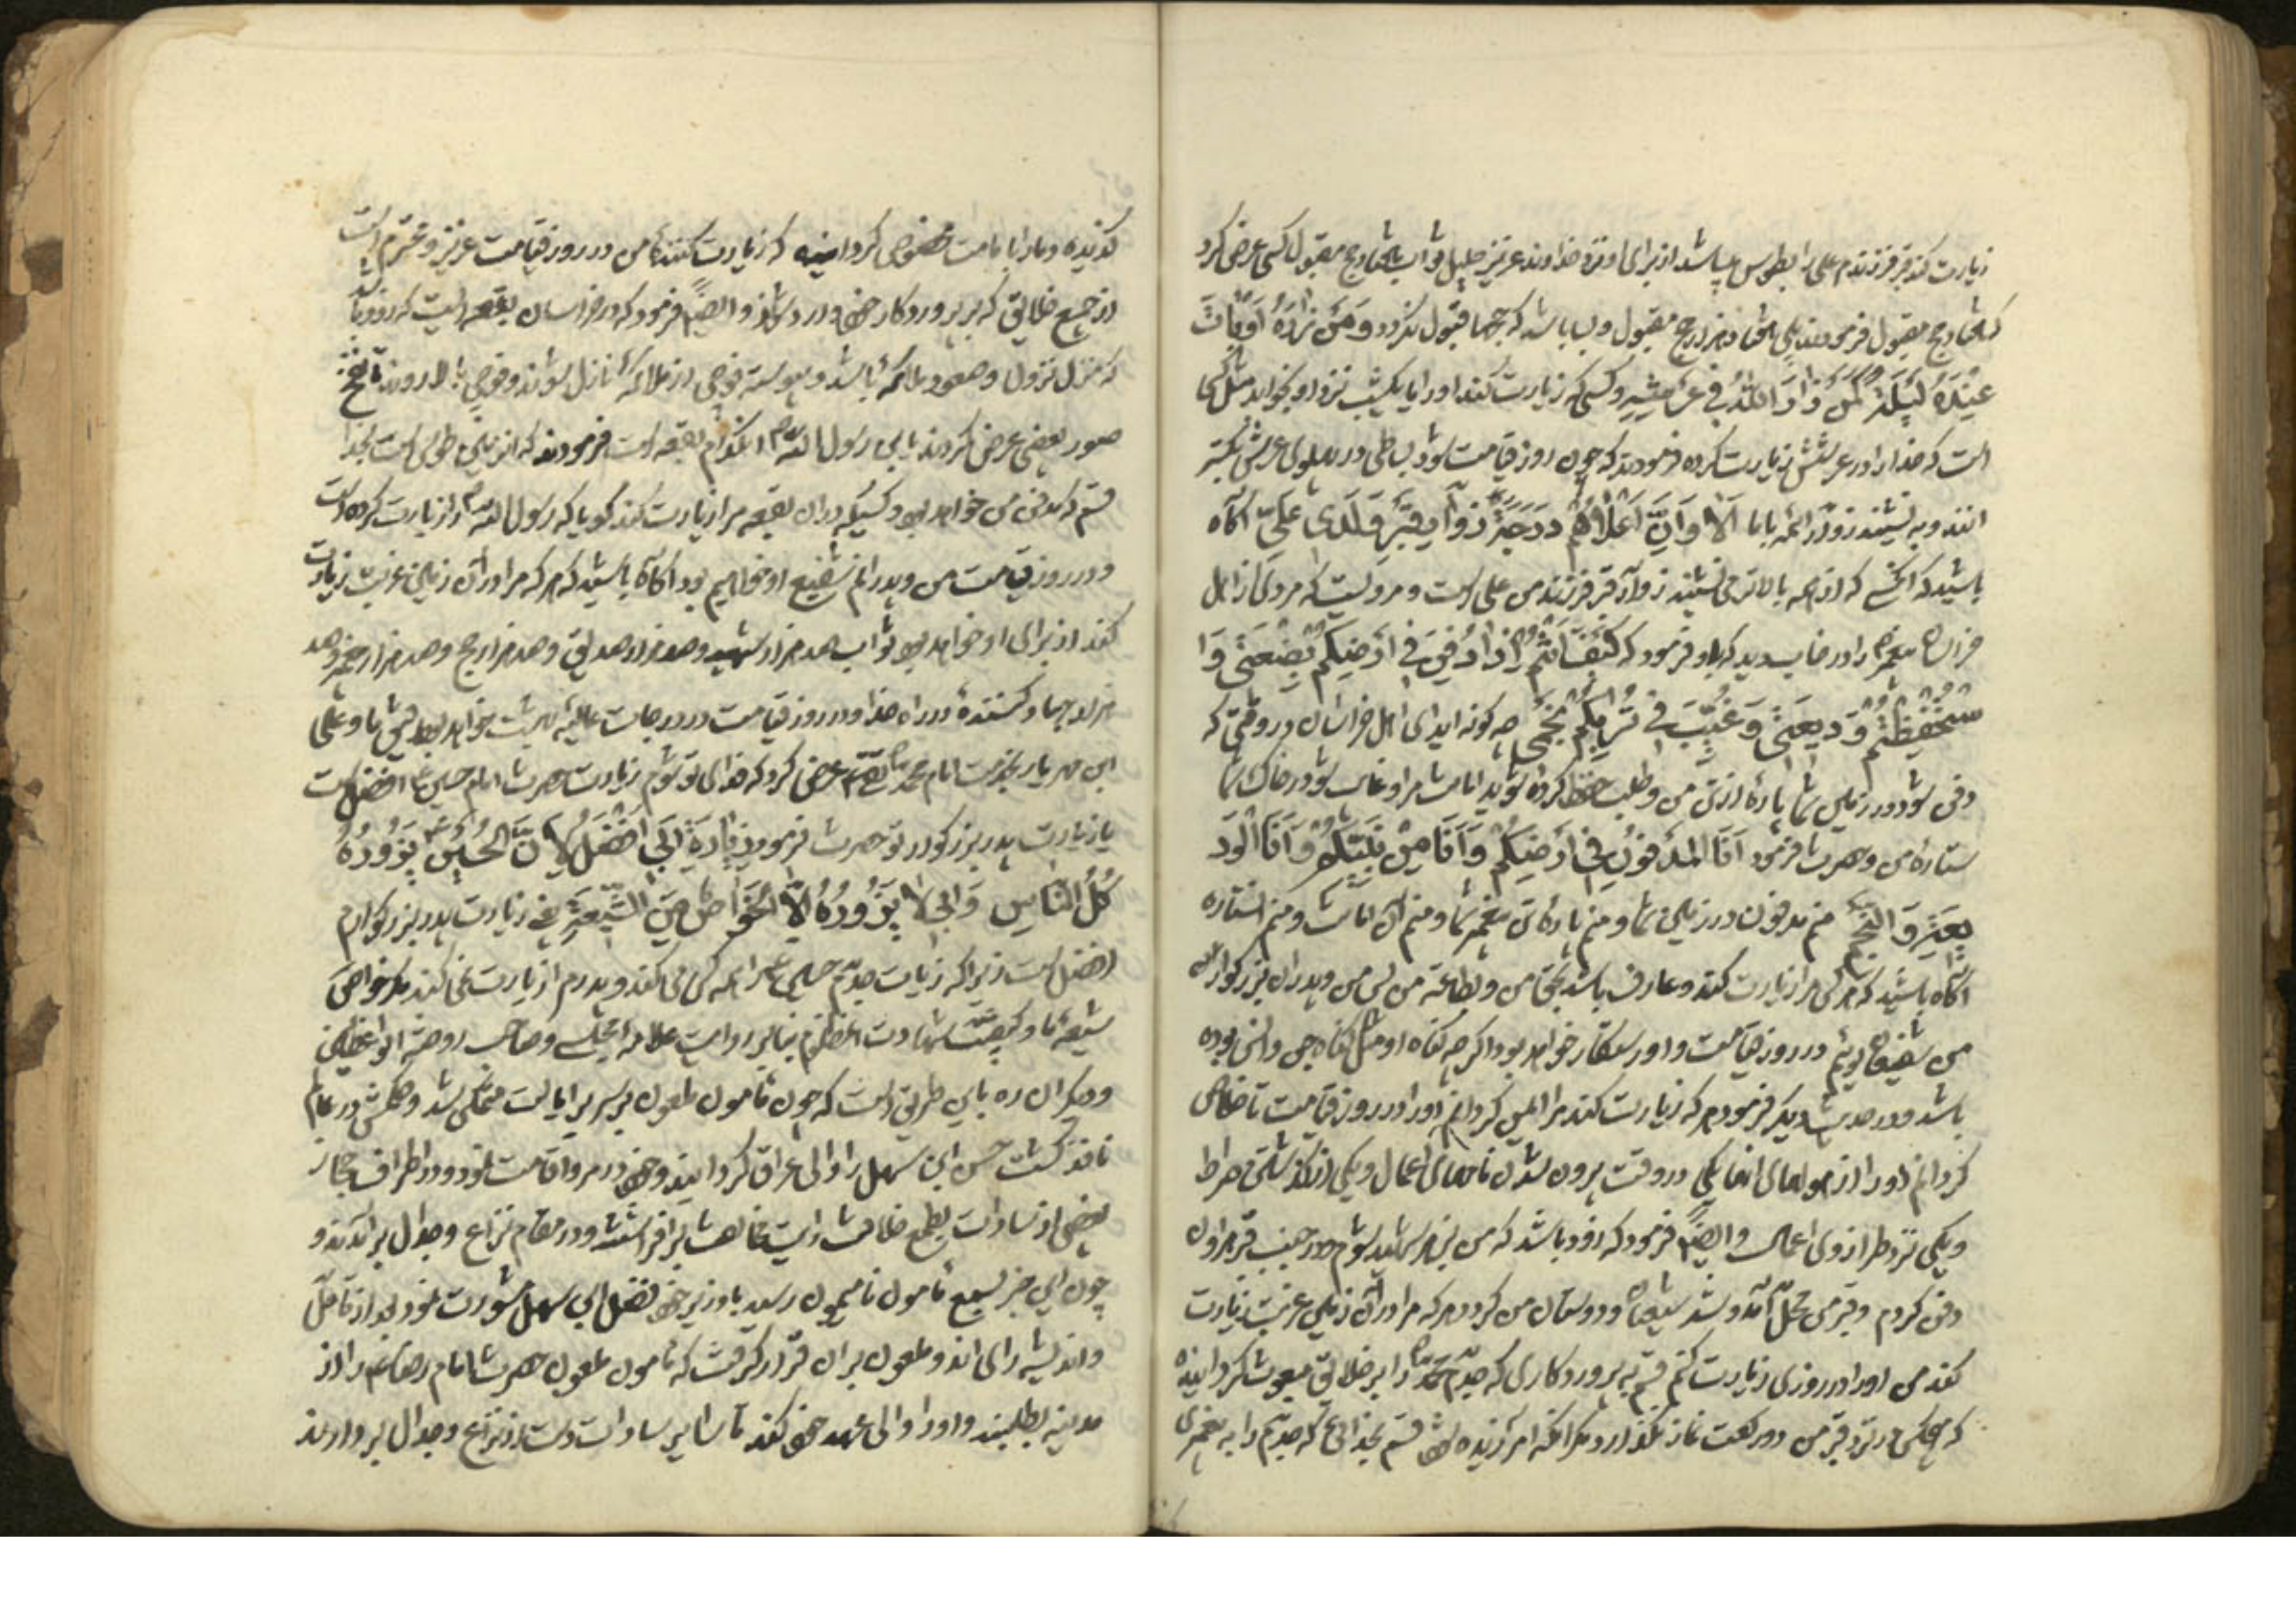 زیارت کند قبر فرزندم علی را بطوس میباشد از برای او نزد خداوند عزیز جلیل ثواب هفتاد حج مقبول کسی عرض کرد
که هفتاد حج مقبول فرمودند بلی هفتاد هزار حج مقبول و بسا باشد که حجها قبول نگردد وَمَن زارَهُ اَوباتَ
عِندَهُ لَیلَةً کَمَن زارَ اللهُ فی عَرشِهِ و کسی که زیارت کند او را یا یکشب نزد او بخوابد مثل کسی
است که خدا را در عرشش زیارت کرده فرمودند که چون روز قیامت شود بساطی در پهلوی عرش
و بنشیند زوّار ائمه باما اَلا وَاِنَّ اَعلاهُم دَرَجَةً زُوّارُ قَبرِ وَلَدی عَلیٍّ آگاه
باشید که آنکسی که از همه بالاتر می نشیند زوّار قبر فرزند من علی است و مرویست که مردی از اهل
خراسان پیغمبر را در خواب دید که باو فرمود که کَیفَ اَنتُم اِذا دُفِنَ فی اَرضِکُم بَضعَتی وَا
ستُحفِظتُم وَدیعَتی وَغُیِّبَ فی تُرابِکُم نَجمی چه کونه اید ای اهل خراسان در وقتی که
دفن شود در زمین شما پاره از تن من و طلب حفظ کرده شوید امانت مرا و غایب شود در خاک شما
ستاره من و حضرت فرمود اَنَا المَدفونُ فی اَرضِکُم وَاَنَا مِن نَبیِّکُم وَاَنَا الوَد
یعَةُ وَالنَّجمُ منم مدفون در زمین شما و منم پاره تن پیغمبر شما و منم آن امانت و منم آن ستاره
آگاه باشید که هر کس مرا زیارت کند و عارف باشد بحق من و بطاعة من پس من و پدران بزرکوار
من شفیعان اوئیم در روز قیامت و او رستکار خواهد بود اکرچه کناه او مثل کناه جن و انس بوده
باشد و در حدیث دیکر فرمود هر که زیارت کند مرا ایمن کردانم او را در روز قیامت تا خلاص
کردانم او را از هولهای آنجا یکی در وقت پرون شدن نامهای اعمال و یکی از کذشتن صراط
و یکی نزد ترازوی اعمال و ایضاً فرمود که زود باشد که من بزهر شهید شوم و در جنب قبر هارون
دفن کردم و قبر من محل آمد و شد شیعیان و دوستان من کردد هر که مرا در آن زمین غربت زیارت
کند من او را در روزی زیارت کنم قسم به پروردکاری که جدّم محمد را بر خلایق مبعوث کردانیده
که هر کس در نزد قبر من دو رکعت نماز بکذارد مکر آنکه آمرزیده شود قسم بخدائی که جدّم را به پیغمبری
کزیده و ما را بامامت مخصوص کردانیده که زیارت کنندۀ من در روز قیامت عزیز و محترم است
از جمیع خلایقی که بر پروردکار خود وارد شوند و ایضاً فرمود که در خراسان بقعه ایست که زود باشد
که منزل نزول و صعود ملائکه باشد و پیوسته فوجی از ملائکه نازل شوند و فوجی بالا روند تا نفخ
صور بعضی عرض کردند یابن رسول الله آن کدام بقعه است فرمودند که آن زمین طوس است بخدا
قسم که مدفن من خواهد بود و کسیکه در آن بقعه مرا زیارت کند کویا که رسول الله را زیارت کرده است
و در روز قیامت من و پدرانم شفیع او خواهیم بود آگاه باشید که هر که مرا در آن زمین غربت زیارت
کند از برای او خواهد بود ثواب صد هزار شهید و صد هزار صدیق و صد هزار حج و صد هزار عمره و صد
هزار جهاد کنندۀ در راه خدا و در روز قیامت در درجات عالیۀ بهشت خواهد بود رفیق ما و علی
ابن مهزیار بخدمت امام محمد تقی عرض کرد که فدای تو شوم زیارت حضرت امام حسین افضل است
یا زیارت پدر بزرکوار تو حضرت فرمود زِیارَةُ اَبی اَفضَلُ لِاَنَّ الحُسَینَ یَزُورُهُ
کُلُّ النّاسِ وَاَبی لا یَزُورُهُ اِلَّا الخَواصُّ مِنَ الشّیعَةِ یعنی زیارت پدر بزرکوارم
افضل است زیرا که زیارت جدّم حسین را همه کس می کند و پدرم را زیارت نمی کند مکر خواص
شیعۀ ما و کیفیت شهادت آن مظلوم بنابر روایت علامه مجلسی و صاحب روضة الواعظین
و دیکران ره باین طریق است که چون مامون ملعون بر سریر ایالت متمکن شد و حکمش در عالم
نافذ کشت حسن ابن سهل را والی عراق کردانید و خود در مرو اقامت نمود و در اطراف حجاز
بعضی از سادات بطمع خلافت رایت مخالفت برافراشتند و در مقام نزاع و جدال برآمدند و
چون این خبر بسمع مامون نامیمون رسید با وزیر خود فضل ابن سهل مشورت نمود بعد از تامّل
و اندیشه رای آندو ملعون بر آن قرار کرفت که مامون ملعون حضرت امام رضا را از
مدینه بطلبند و او را والی عهد خود کند تا سایر سادات دست از نزاع و جدال بردارند